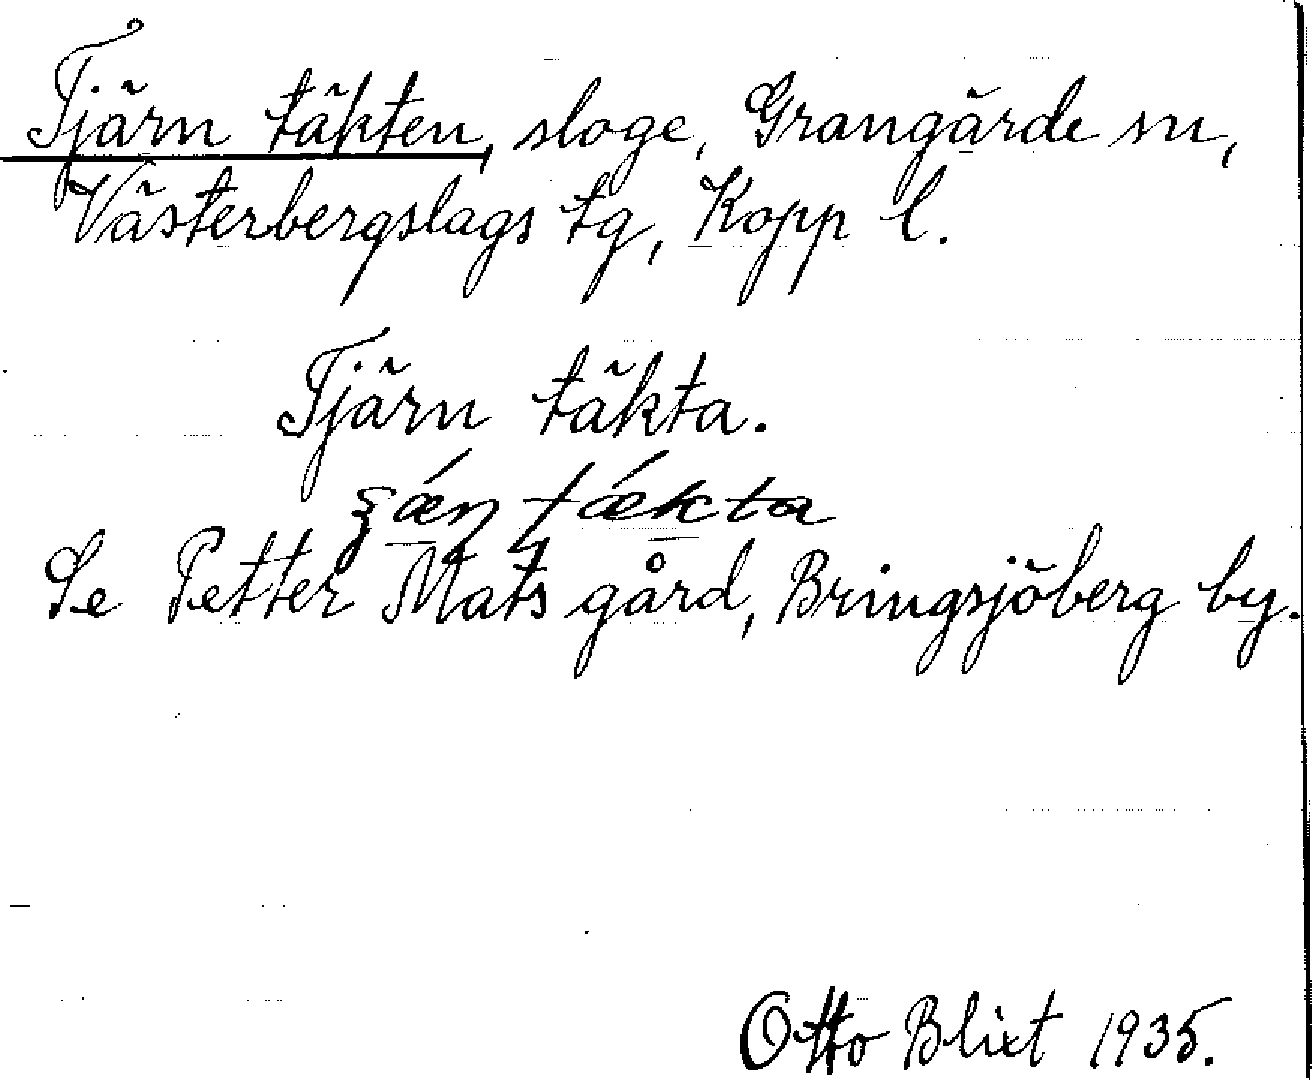 Tjärn täkten, sloge, Grangärde sn,
Västerbergslags tg, Kopp l.
Tjärn täkta.
Se Petter Mats gård, Bringsjöberg by.
Otto Blixt 1935.